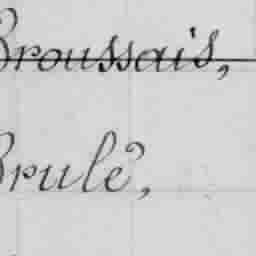 Broussais,
Brulé,